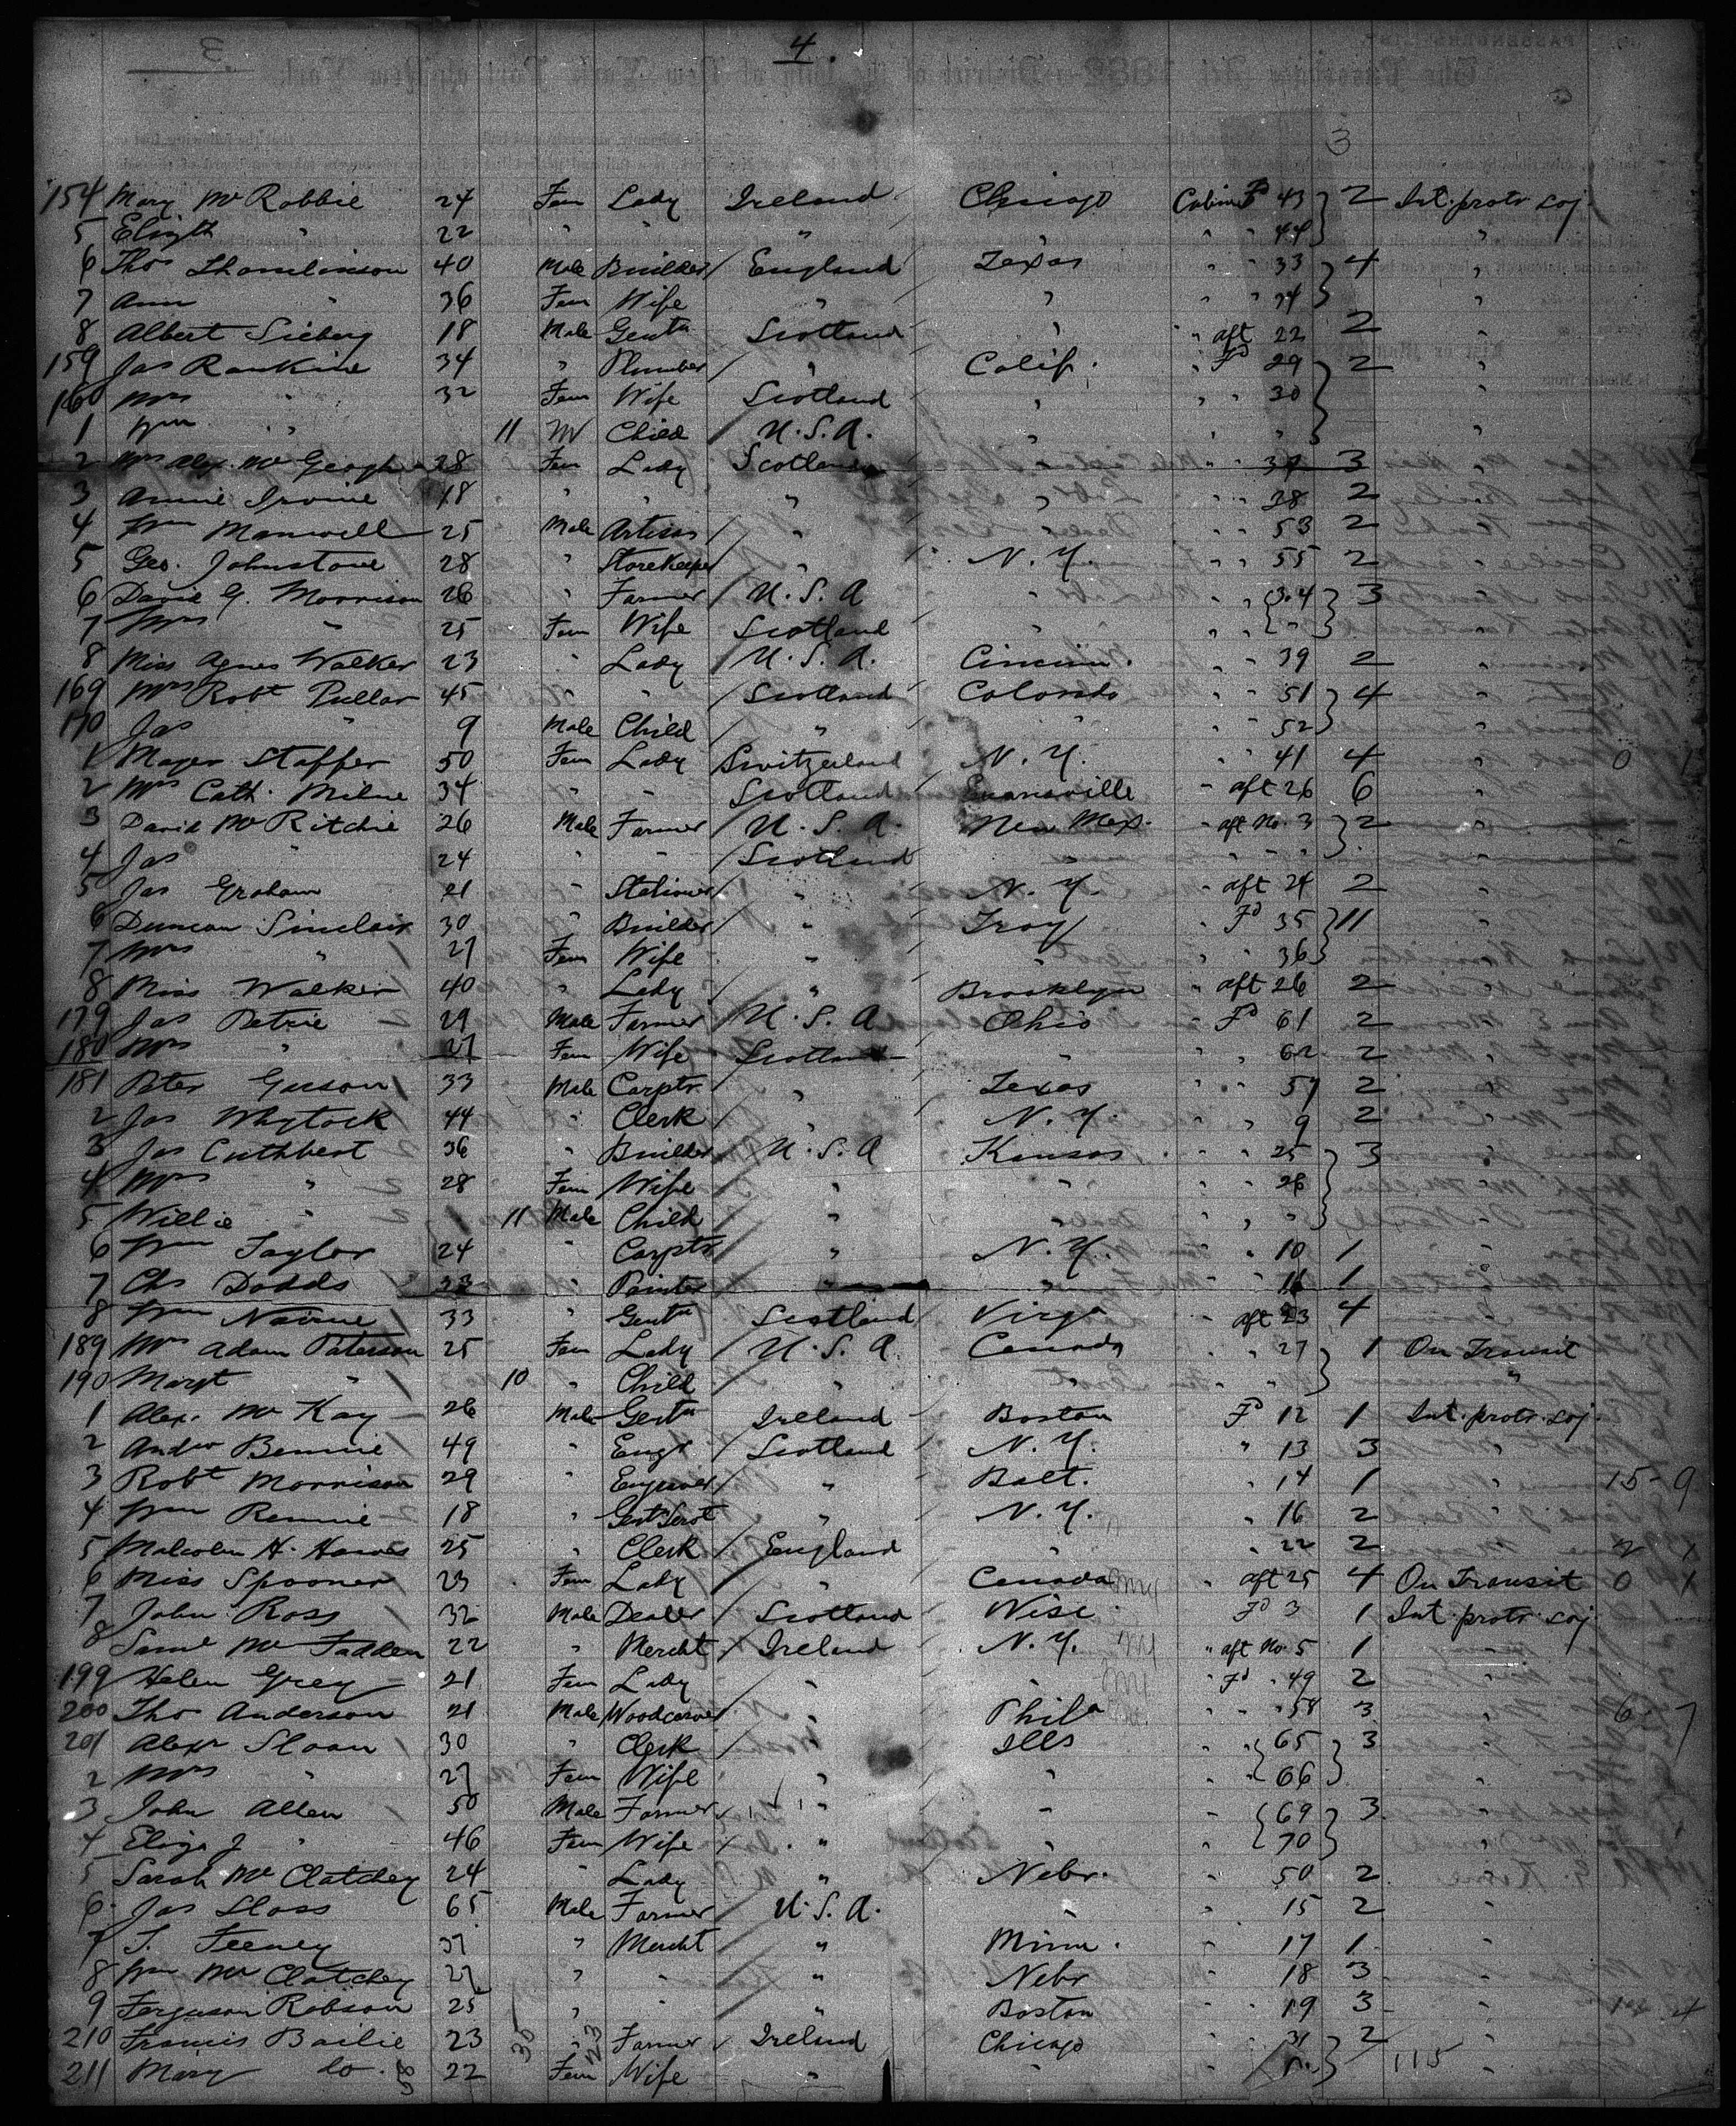 4.
3
154 Mary Mc Robbie 24 Fem Lady Ireland Chicago Cabin Fd 43 } 2 Int. protr soj.
5 Elizth " 22 " " " " " " 44 "
6 Thos Thomlinson 40 Male Builder England Texas " " 33 } 4 "
7 Ann " 36 Fem Wife " " " " 34 "
8 Albert Sieberg 18 Male Gentn Scotland " " aft 22 2 "
159 Jas Rankine 34 " Plumber " Calif. " Fd 29 } 2 "
160 Mrs " 32 Fem Wife Scotland " " " 30 "
1 Wm " 11 M Child U.S.A. " " " " "
2 Mrs Alex. Mc Geogh 28 Fem Lady Scotland " " 37 3 "
3 Annie Irvine 18 " " " " " " 38 2 "
4 Wm Manwell 25 Male Artisan " " " " 53 2 "
5 Geo. Johnstone 28 " Storekeeper " N.Y. " " 55 2 "
6 David G. Morrison 26 " Farmer U.S.A " " " { 3.4 } 3 "
7 Mrs " 25 Fem Wife Scotland " " " " "
8 Miss Agnes Walker 23 " Lady U.S.A. Cincinn. " " 39 2 "
169 Mrs Robt Pullar 45 " " Scotland Colorado " " 51 } 4 "
170 Jas " 9 Male Child " " " " 52 "
1 Stoffer 50 Fem Lady Switzerland N.Y. " 41 4 " 0 1
2 Mrs Cath. Milne 34 " " Scotland Evansville " aft 26 6 "
3 David Mc Ritchie 26 Male Farmer U.S.A. New Mex. " aft No. 3 } 2 "
4 Jas " 24 " " Scotland " " " " "
5 Jas Graham 21 " Stationer " N.Y. " aft 24 2 "
6 Duncan Sinclair 30 " Builder " Troy " Fd 35 } 11 "
7 Mrs " 27 Fem Wife " " " 36 "
8 Miss Walker 40 " Lady " Brooklyn " aft 26 2 "
179 Jas Petrie 29 Male Farmer U.S.A Ohio " Fd 61 2 "
180 Mrs " 27 Fem Wife Scotland " " " 62 2 "
181 Peter 33 Male Carptr " Texas " " 57 2 "
2 Jas Whytock 44 " Clerk " N.Y. " " 9 2 "
3 Jas Cuthbert 36 " Builder U.S.A Kansas " " 25 } 3 "
4 Mrs " 28 Fem Wife " " " " 26 "
5 Willie " 11 Male Child " " " " " "
6 Wm Taylor 24 " Carptr " N.Y. " " 10 1 "
7 Chs Dodds 23 " Painter " " " " 11 1 "
8 Wm Nairne 33 " Gentn Scotland Virga aft 23 4 "
189 Mrs Adam Paterson 25 Fem Lady U.S.A. Canada " " 27 } 1 On Transit
190 Margt " 10 " Child " " " " "
1 Alex. Mc Kay 26 Male Gentn Ireland Boston Fd 12 1 Int. protr. soj.
2 Andw Bennie 49 " Engr Scotland N.Y. " 13 3 "
3 Robt Morrison 29 " Engraver " Balt. " 14 1 " 15 - 9
4 Wm Rennie 18 " Gent Servt " N.Y. " 16 2 "
5 Malcolm H. 25 " Clerk England " " 22 2 " 1
6 Miss Spooner 23 Fem Lady " Canada " aft 25 4 On Transit 0 1
7 John Ross 32 Male Dealer Scotland Wisc. Fd 3 1 Int. protr. soj.
8 Saml Mc Fadden 22 " Mercht Ireland N.Y. " aft No 5 1 "
199 Helen Grey 21 Fem Lady " " " Fd 49 2 "
200 Thos Anderson 21 Male Woodcarver " Phila " " 58 3 " 6 - 7
201 Alexr Sloan 30 " Clerk " Ills " " { 65 } 3 "
2 Mrs " 27 Fem Wife " " " " 66 "
3 John Allen 50 Male Farmer " " " { 69 } 3 "
4 Eliza J " 46 Fem Wife " " " 70 "
5 Sarah Mc Clatchey 24 " Lady " Nebr. " 50 2 "
6 Jas Sloss 65 Male Farmer U.S.A. " " 15 2 "
7 J. Feeney 37 " Mercht " Minn. " 17 1 "
8 Wm Mc Clatchey 27 " " " Nebr " 18 3 "
9 Ferguson Robson 25 " " " Boston " " 19 3 "
210 Francis Bailie 23 " Farmer Ireland Chicago " " 31 } 2 "
211 Mary Do. 22 Fem Wife " " 115 "
58 35 23